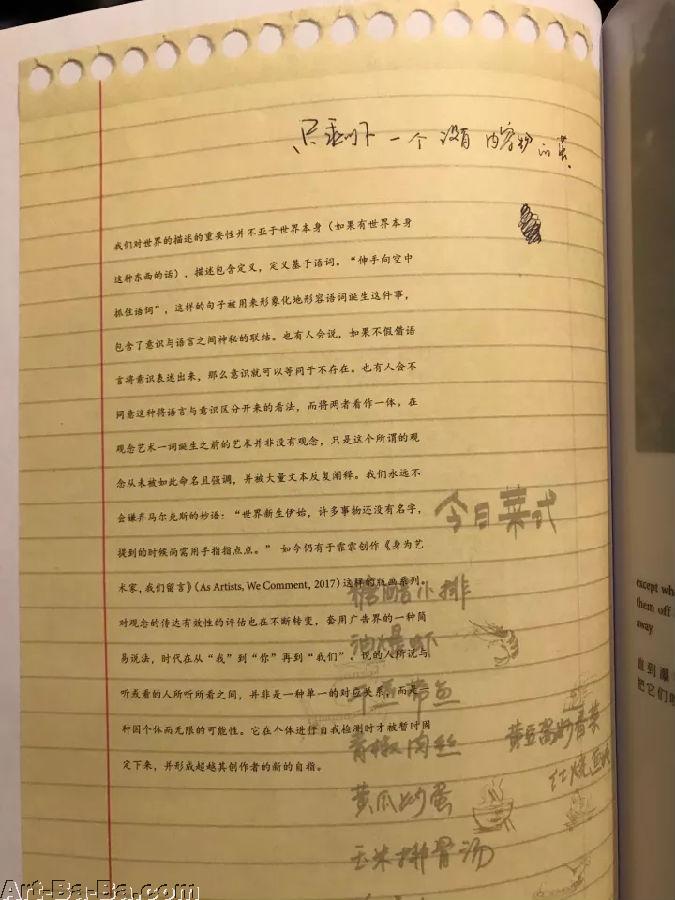 只剩下 一个 没有 内容物 的 袋
我们对世界的描述的重要性并不亚于世界本身（如果有世界本身
这种东西的话），描述包含定义，定义基于语词，“伸手向空中
抓住语词”，这样的句子被用来形象化地形容语词诞生这件事，
包含了意识与语言之间神秘的联结。也有人会说，如果不假借语
言将意识表述出来，那么意识就可以等同于不存在。也有人会不
同意这种将语言与意识区分开来的看法，而将两者看作一体，在
观念艺术一词诞生之前的艺术并非没有观念，只是这个所谓的观
念从未被如此命名且强调，并被大量文本反复阐释。我们永远不
会嫌弃马尔克斯的妙语：“世界新生伊始，许多事物还没有名字，
提到的时候尚需用手指指点点。” 如今仍有于霏霏创作《身为艺
术家，我们留言》（As Artists, We Comment, 2017）这样的版画系列。
对观念的传达有效性的评估也在不断转变，套用广告界的一种简
易说法，时代在从“我”到“你”再到“我们”。说的人所说与
听或看的人所听所看之间，并非是一种单一的对应关系，而是一
种因个体而无限的可能性。它在个体进行自我检测时才被暂时固
定下来，并形成超越其创作者的新的自指。
今日菜式
糖醋小排
油爆虾
干煎带鱼
青椒肉丝
黄豆酱炒青菜
红烧
黄瓜炒蛋
玉米排骨汤
except
them off
away
直到
把它们
Art-Ba-Ba.com